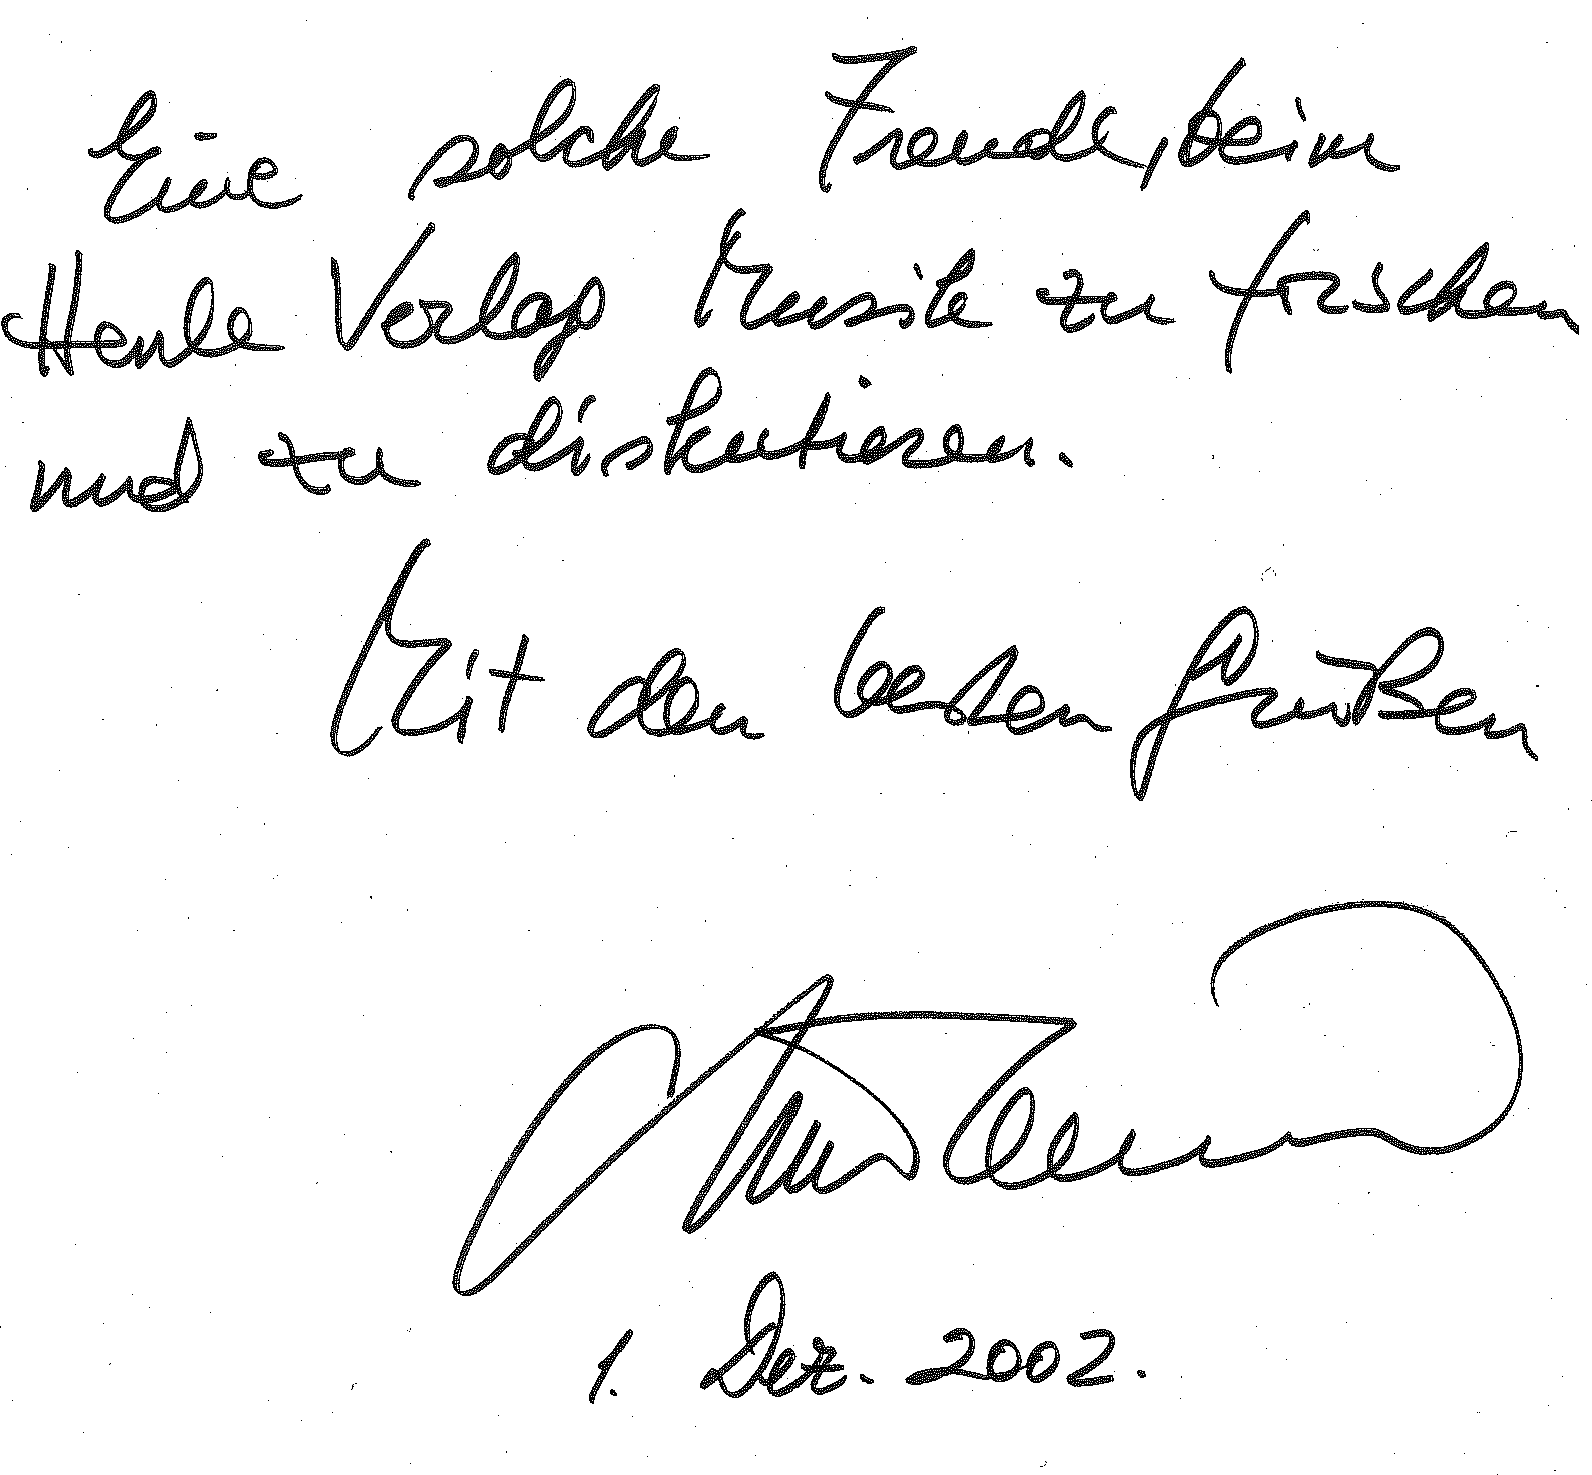 Eine solche Freude, beim
Henle Verlag Musik zu forschen
und zu diskutieren.
Mit den besten Grüßen
1. Dez. 2002.